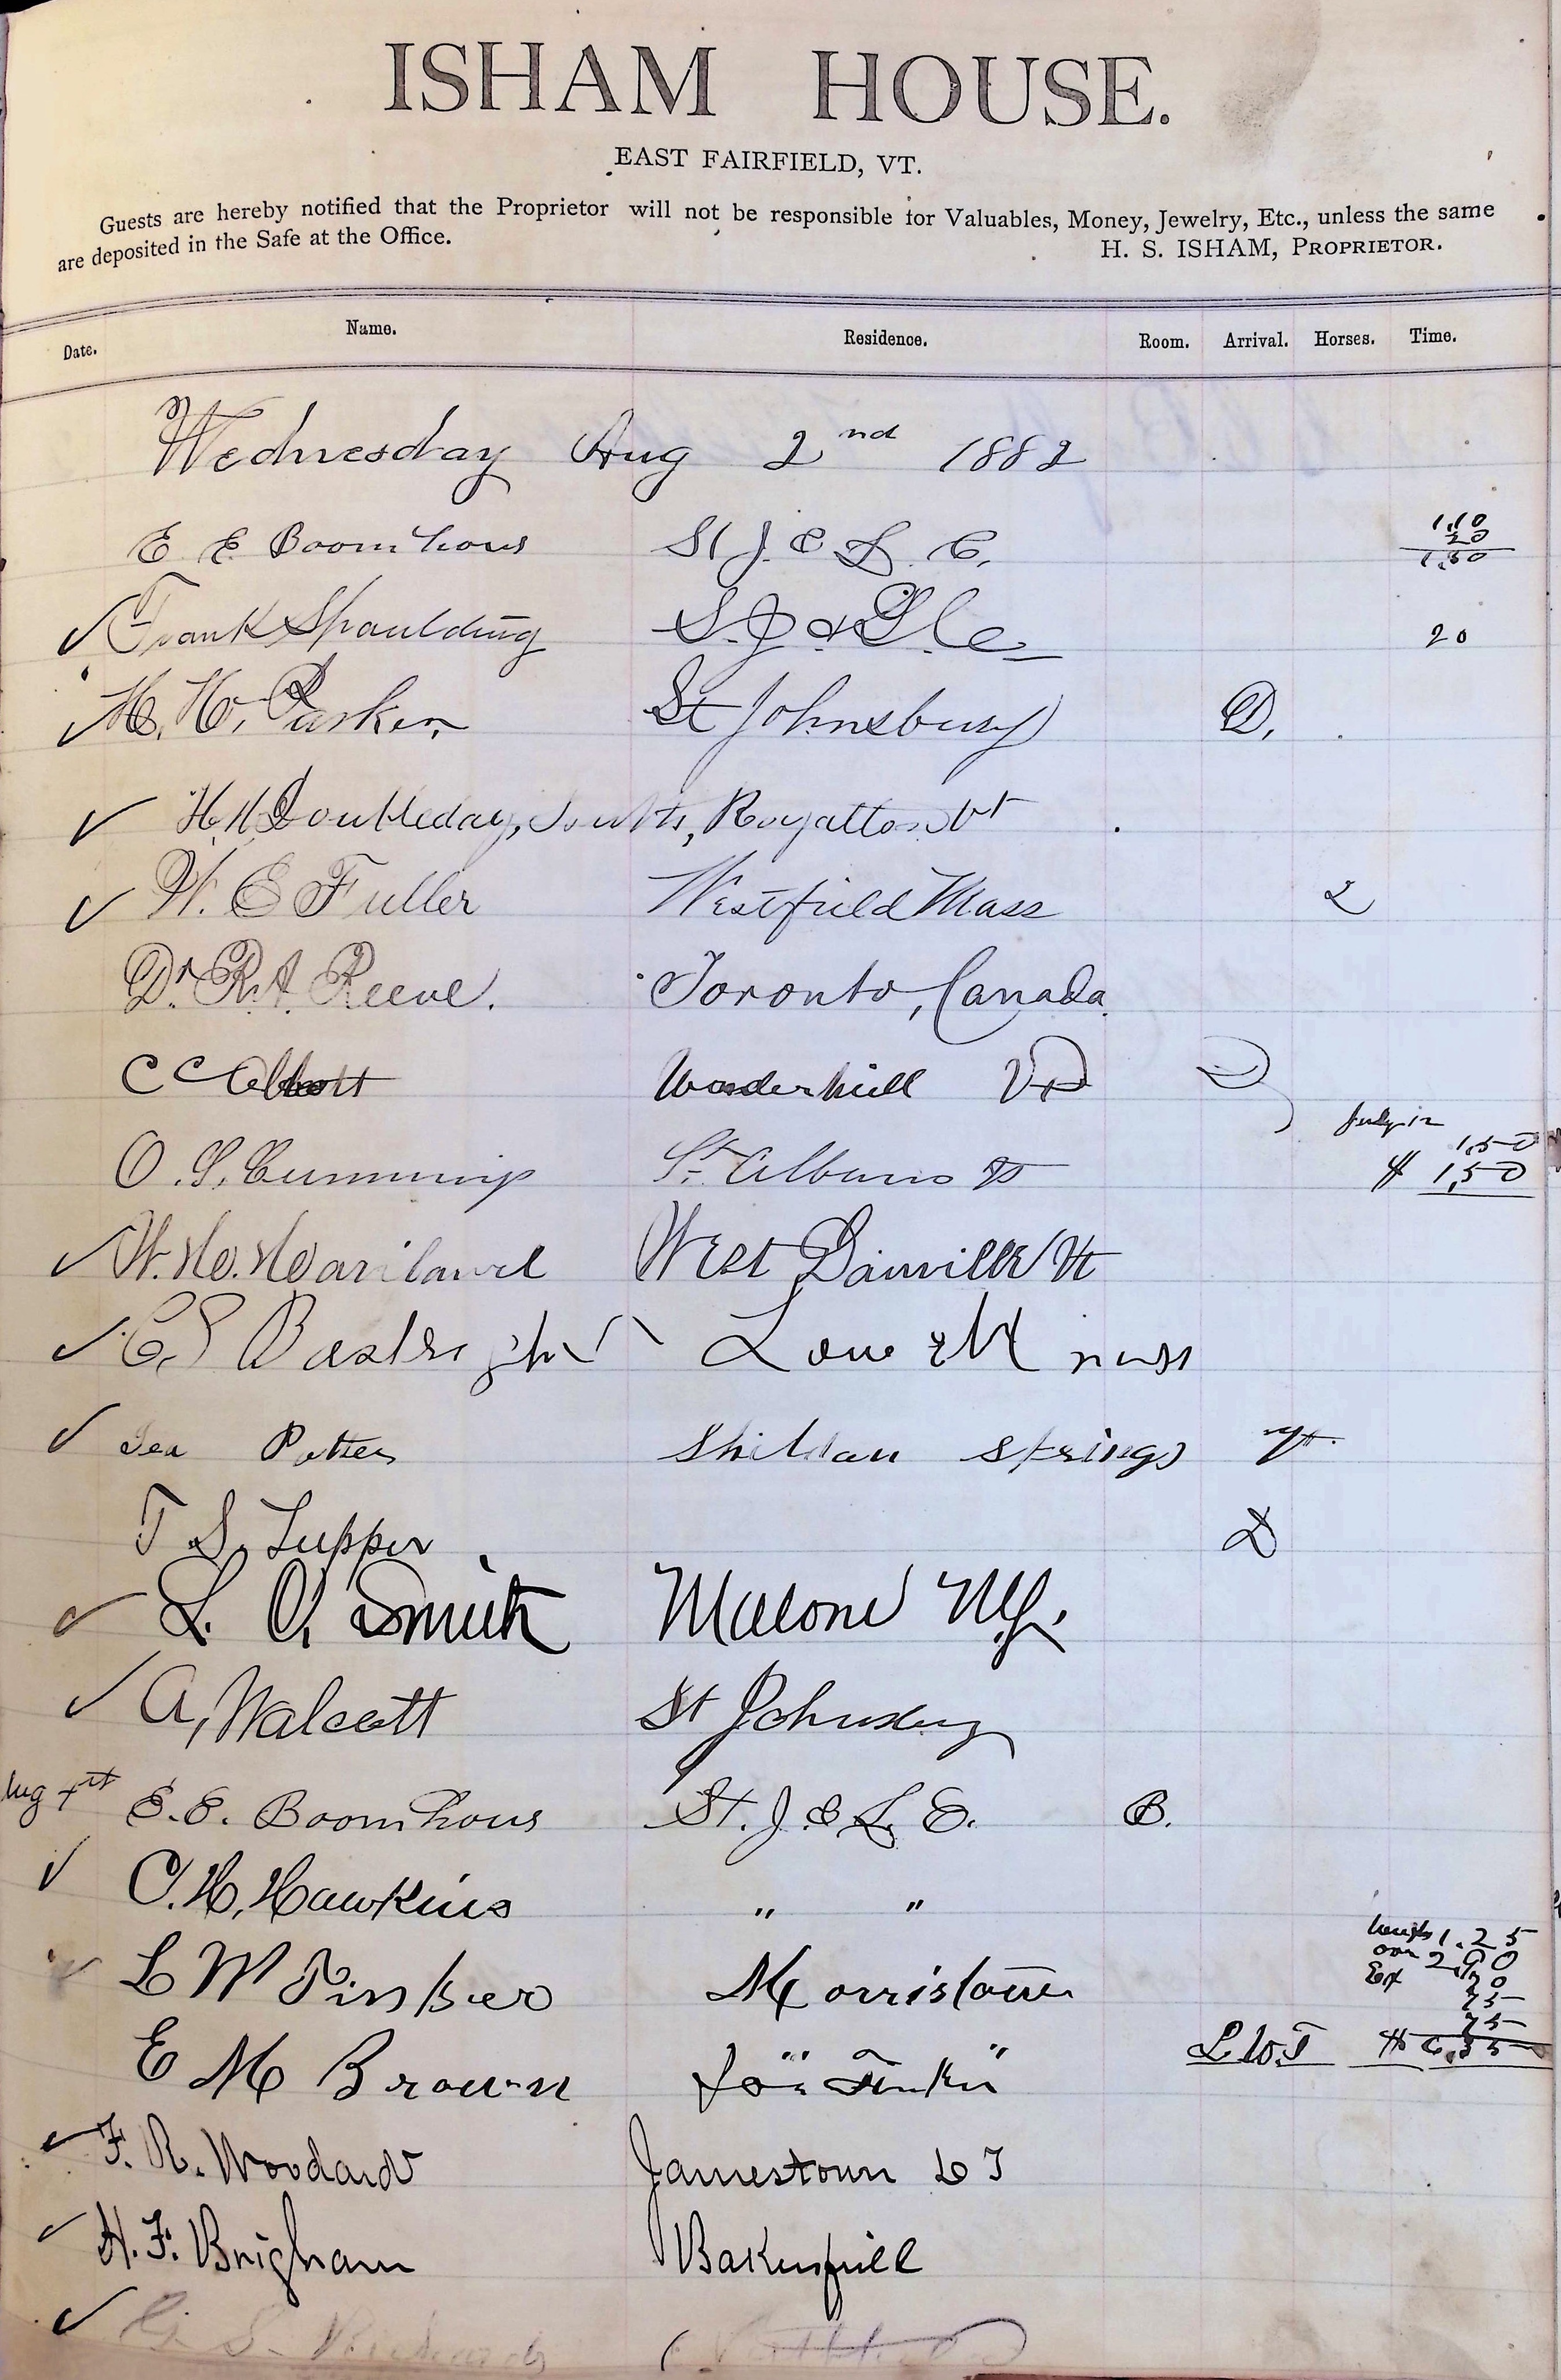 ISHAM HOUSE.
EAST FAIRFIELD, VT.
Guests are hereby notified that the Proprietor will not be responsible for Valuables, Money, Jewelry, Etc., unless the same
are deposited in the Safe at the Office.
H. S. ISHAM, PROPRIETOR.
Date. Name. Residence. Room. Arrival. Horses. Time.
Wednesday Aug 2nd 1882
1.10
20
E E Boomhour St J. & L. C. 1.30
Frank Spaulding S. J. & L. C. 20
H. H. Parker St Johnsbury D.
H. H. Doubleday, South, Royalton Vt
W. E Fuller Westfield Mass 2
Dr. R. A. Reeve. Toronto, Canada.
C C Abbott Underhill Vt D
July 12
1,50
O. S. Cummings St. Albans Vt $ 1,50
W. H. West Danville Vt
C S Lowell mass
Potter Sheldon Springs Vt.
T S. Tupper D
L. O. Smith Malone N.Y.
A, Walcott St Johnsbury
Aug 4th E. E. Boomhour St. J. & L. C. B.
C. H. Hawkins " "
1.25
2.90
Ext 70
75
L W Tinker Morristown 75
L W. T $ 6.35
E M Brown " "
for Tinker
F. R. Woodard Jamestown D T
H. F. Brigham Bakersfield
G. S.